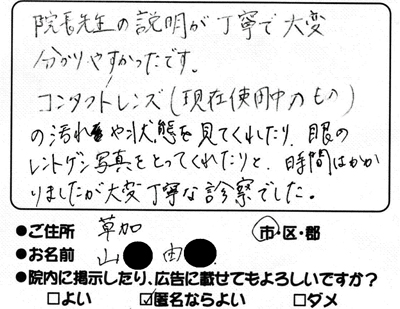 院長先生の説明が丁寧で大変
分かりやすかったです。
コンタクトレンズ(現在使用中のもの)
の汚れや状態を見てくれたり、眼の
レントゲン写真をとってくれたりと、時間はかか
りましたが大変丁寧な診察でした。
●ご住所 草加 市・区・郡
●お名前 山● 由●
●院内に掲示したり、広告に載せてもよろしいですか?
□よい ☑匿名ならよい □ダメ